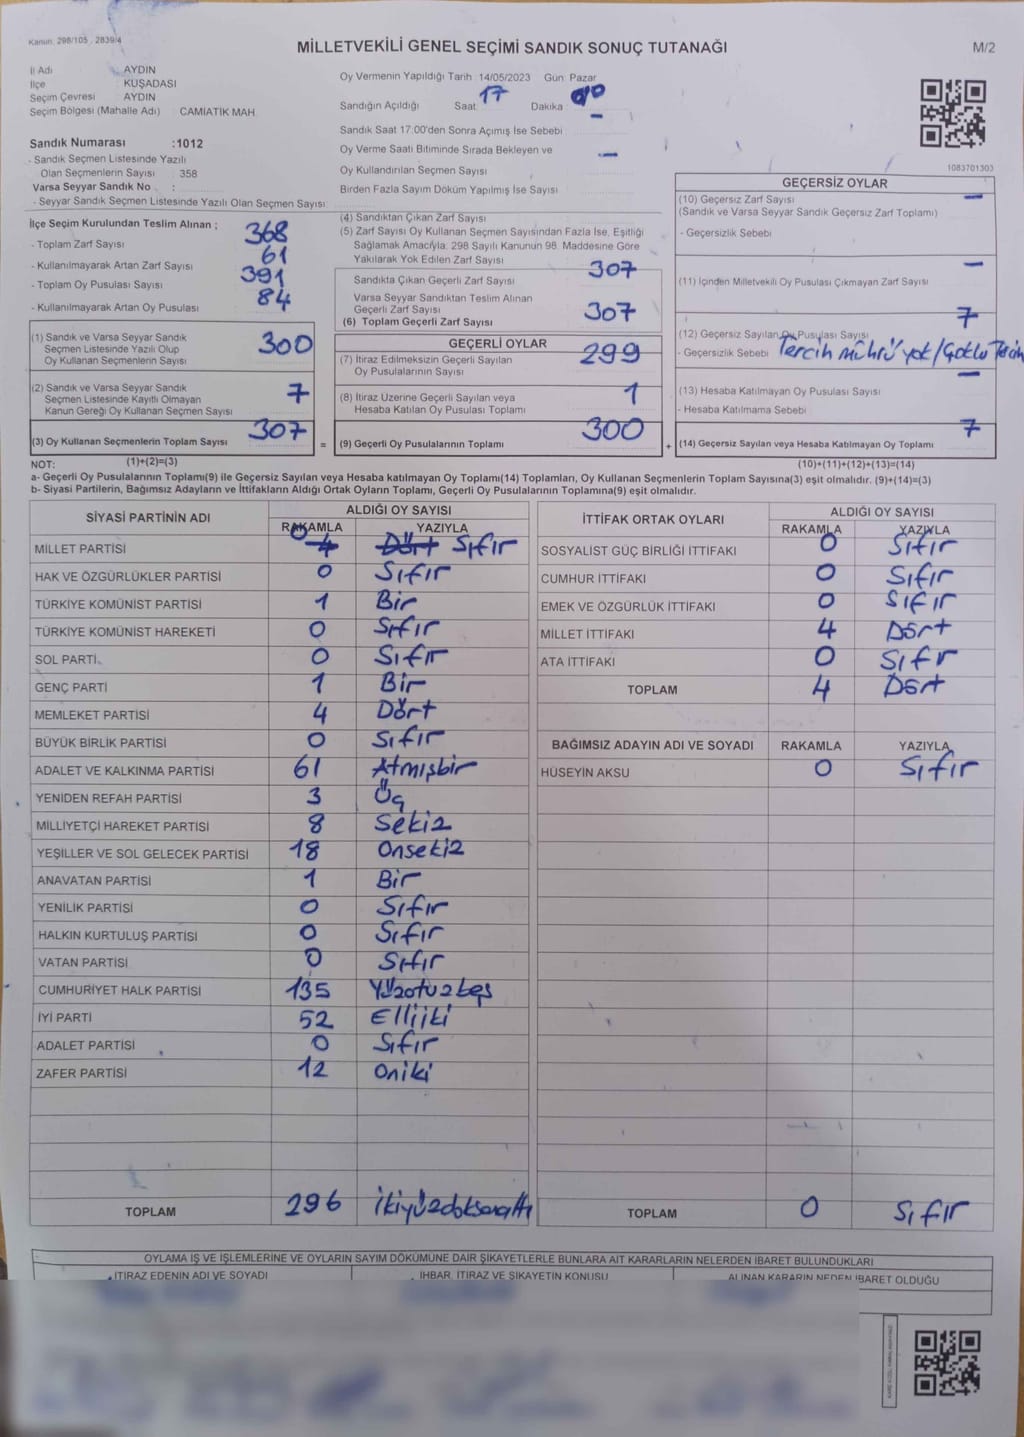 Kanun: 298/105 , 2839/4
MİLLETVEKİLİ GENEL SEÇİMİ SANDIK SONUÇ TUTANAĞI
M/2
İl Adı AYDIN
İlçe KUŞADASI
Seçim Çevresi AYDIN
Seçim Bölgesi (Mahalle Adı) CAMİATİK MAH
Sandık Numarası :1012
- Sandık Seçmen Listesinde Yazılı
Olan Seçmenlerin Sayısı : 358
Varsa Seyyar Sandık No :
- Seyyar Sandık Seçmen Listesinde Yazılı Olan Seçmen Sayısı :
Oy Vermenin Yapıldığı Tarih 14/05/2023 Gün: Pazar
Sandığın Açıldığı Saat 17 Dakika 00
Sandık Saat 17.00'den Sonra Açımış İse Sebebi –
Oy Verme Saati Bitiminde Sırada Bekleyen ve
Oy Kullandırılan Seçmen Sayısı –
Birden Fazla Sayım Döküm Yapılmış İse Sayısı
1083701303
İlçe Seçim Kurulundan Teslim Alınan ;
- Toplam Zarf Sayısı 368
- Kullanılmayarak Artan Zarf Sayısı 61
- Toplam Oy Pusulası Sayısı 391
- Kullanılmayarak Artan Oy Pusulası 84
(1) Sandık ve Varsa Seyyar Sandık
Seçmen Listesinde Yazılı Olup
Oy Kullanan Seçmenlerin Sayısı 300
(2) Sandık ve Varsa Seyyar Sandık
Seçmen Listesinde Kayıtlı Olmayan
Kanun Gereği Oy Kullanan Seçmen Sayısı 7
(3) Oy Kullanan Seçmenlerin Toplam Sayısı 307
(4) Sandıktan Çıkan Zarf Sayısı
(5) Zarf Sayısı Oy Kullanan Seçmen Sayısından Fazla İse, Eşitliği
Sağlamak Amacıyla: 298 Sayılı Kanunun 98. Maddesine Göre
Yakılarak Yok Edilen Zarf Sayısı
Sandıkta Çıkan Geçerli Zarf Sayısı 307
Varsa Seyyar Sandıktan Teslim Alınan
Geçerli Zarf Sayısı
(6) Toplam Geçerli Zarf Sayısı 307
GEÇERLİ OYLAR
(7) İtiraz Edilmeksizin Geçerli Sayılan
Oy Pusulalarının Sayısı 299
(8) İtiraz Üzerine Geçerli Sayılan veya
Hesaba Katılan Oy Pusulası Toplamı 1
= (9) Geçerli Oy Pusulalarının Toplamı 300
GEÇERSİZ OYLAR
(10) Geçersiz Zarf Sayısı –
(Sandık ve Varsa Seyyar Sandık Geçersiz Zarf Toplamı)
- Geçersizlik Sebebi
(11) İçinden Milletvekili Oy Pusulası Çıkmayan Zarf Sayısı –
(12) Geçersiz Sayılan Oy Pusulası Sayısı 7
- Geçersizlik Sebebi Tercih mührü yok/Çoklu
(13) Hesaba Katılmayan Oy Pusulası Sayısı –
- Hesaba Katılmama Sebebi
+ (14) Geçersiz Sayılan veya Hesaba Katılmayan Oy Toplamı 7
NOT: (1)+(2)=(3)
(10)+(11)+(12)+(13)=(14)
a- Geçerli Oy Pusulalarının Toplamı(9) ile Geçersiz Sayılan veya Hesaba katılmayan Oy Toplamı(14) Toplamları, Oy Kullanan Seçmenlerin Toplam Sayısına(3) eşit olmalıdır. (9)+(14)=(3)
b- Siyasi Partilerin, Bağımsız Adayların ve İttifakların Aldığı Ortak Oyların Toplamı, Geçerli Oy Pusulalarının Toplamına(9) eşit olmalıdır.
SİYASİ PARTİNİN ADI ALDIĞI OY SAYISI
RAKAMLA YAZIYLA
MİLLET PARTİSİ 4 0 Dört Sıfır
HAK VE ÖZGÜRLÜKLER PARTİSİ 0 Sıfır
TÜRKİYE KOMÜNİST PARTİSİ 1 Bir
TÜRKİYE KOMÜNİST HAREKETİ 0 Sıfır
SOL PARTİ 0 Sıfır
GENÇ PARTİ 1 Bir
MEMLEKET PARTİSİ 4 Dört
BÜYÜK BİRLİK PARTİSİ 0 Sıfır
ADALET VE KALKINMA PARTİSİ 61 Atmışbir
YENİDEN REFAH PARTİSİ 3 Üç
MİLLİYETÇİ HAREKET PARTİSİ 8 Sekiz
YEŞİLLER VE SOL GELECEK PARTİSİ 18 Onsekiz
ANAVATAN PARTİSİ 1 Bir
YENİLİK PARTİSİ 0 Sıfır
HALKIN KURTULUŞ PARTİSİ 0 Sıfır
VATAN PARTİSİ 0 Sıfır
CUMHURİYET HALK PARTİSİ 135 Yüzotuzbeş
İYİ PARTİ 52 Elliiki
ADALET PARTİSİ 0 Sıfır
ZAFER PARTİSİ 12 Oniki
TOPLAM 296 İkiyüzdoksanaltı
İTTİFAK ORTAK OYLARI ALDIĞI OY SAYISI
RAKAMLA YAZIYLA
SOSYALİST GÜÇ BİRLİĞİ İTTİFAKI 0 Sıfır
CUMHUR İTTİFAKI 0 Sıfır
EMEK VE ÖZGÜRLÜK İTTİFAKI 0 Sıfır
MİLLET İTTİFAKI 4 Dört
ATA İTTİFAKI 0 Sıfır
TOPLAM 4 Dört
BAĞIMSIZ ADAYIN ADI VE SOYADI RAKAMLA YAZIYLA
HÜSEYİN AKSU 0 Sıfır
TOPLAM 0 Sıfır
OYLAMA İŞ VE İŞLEMLERİNE VE OYLARIN SAYIM DÖKÜMÜNE DAİR ŞİKAYETLERLE BUNLARA AİT KARARLARIN NELERDEN İBARET BULUNDUKLARI
İTİRAZ EDENİN ADI VE SOYADI İHBAR, İTİRAZ VE ŞİKAYETİN KONUSU ALINAN KARARIN NEDEN İBARET OLDUĞU